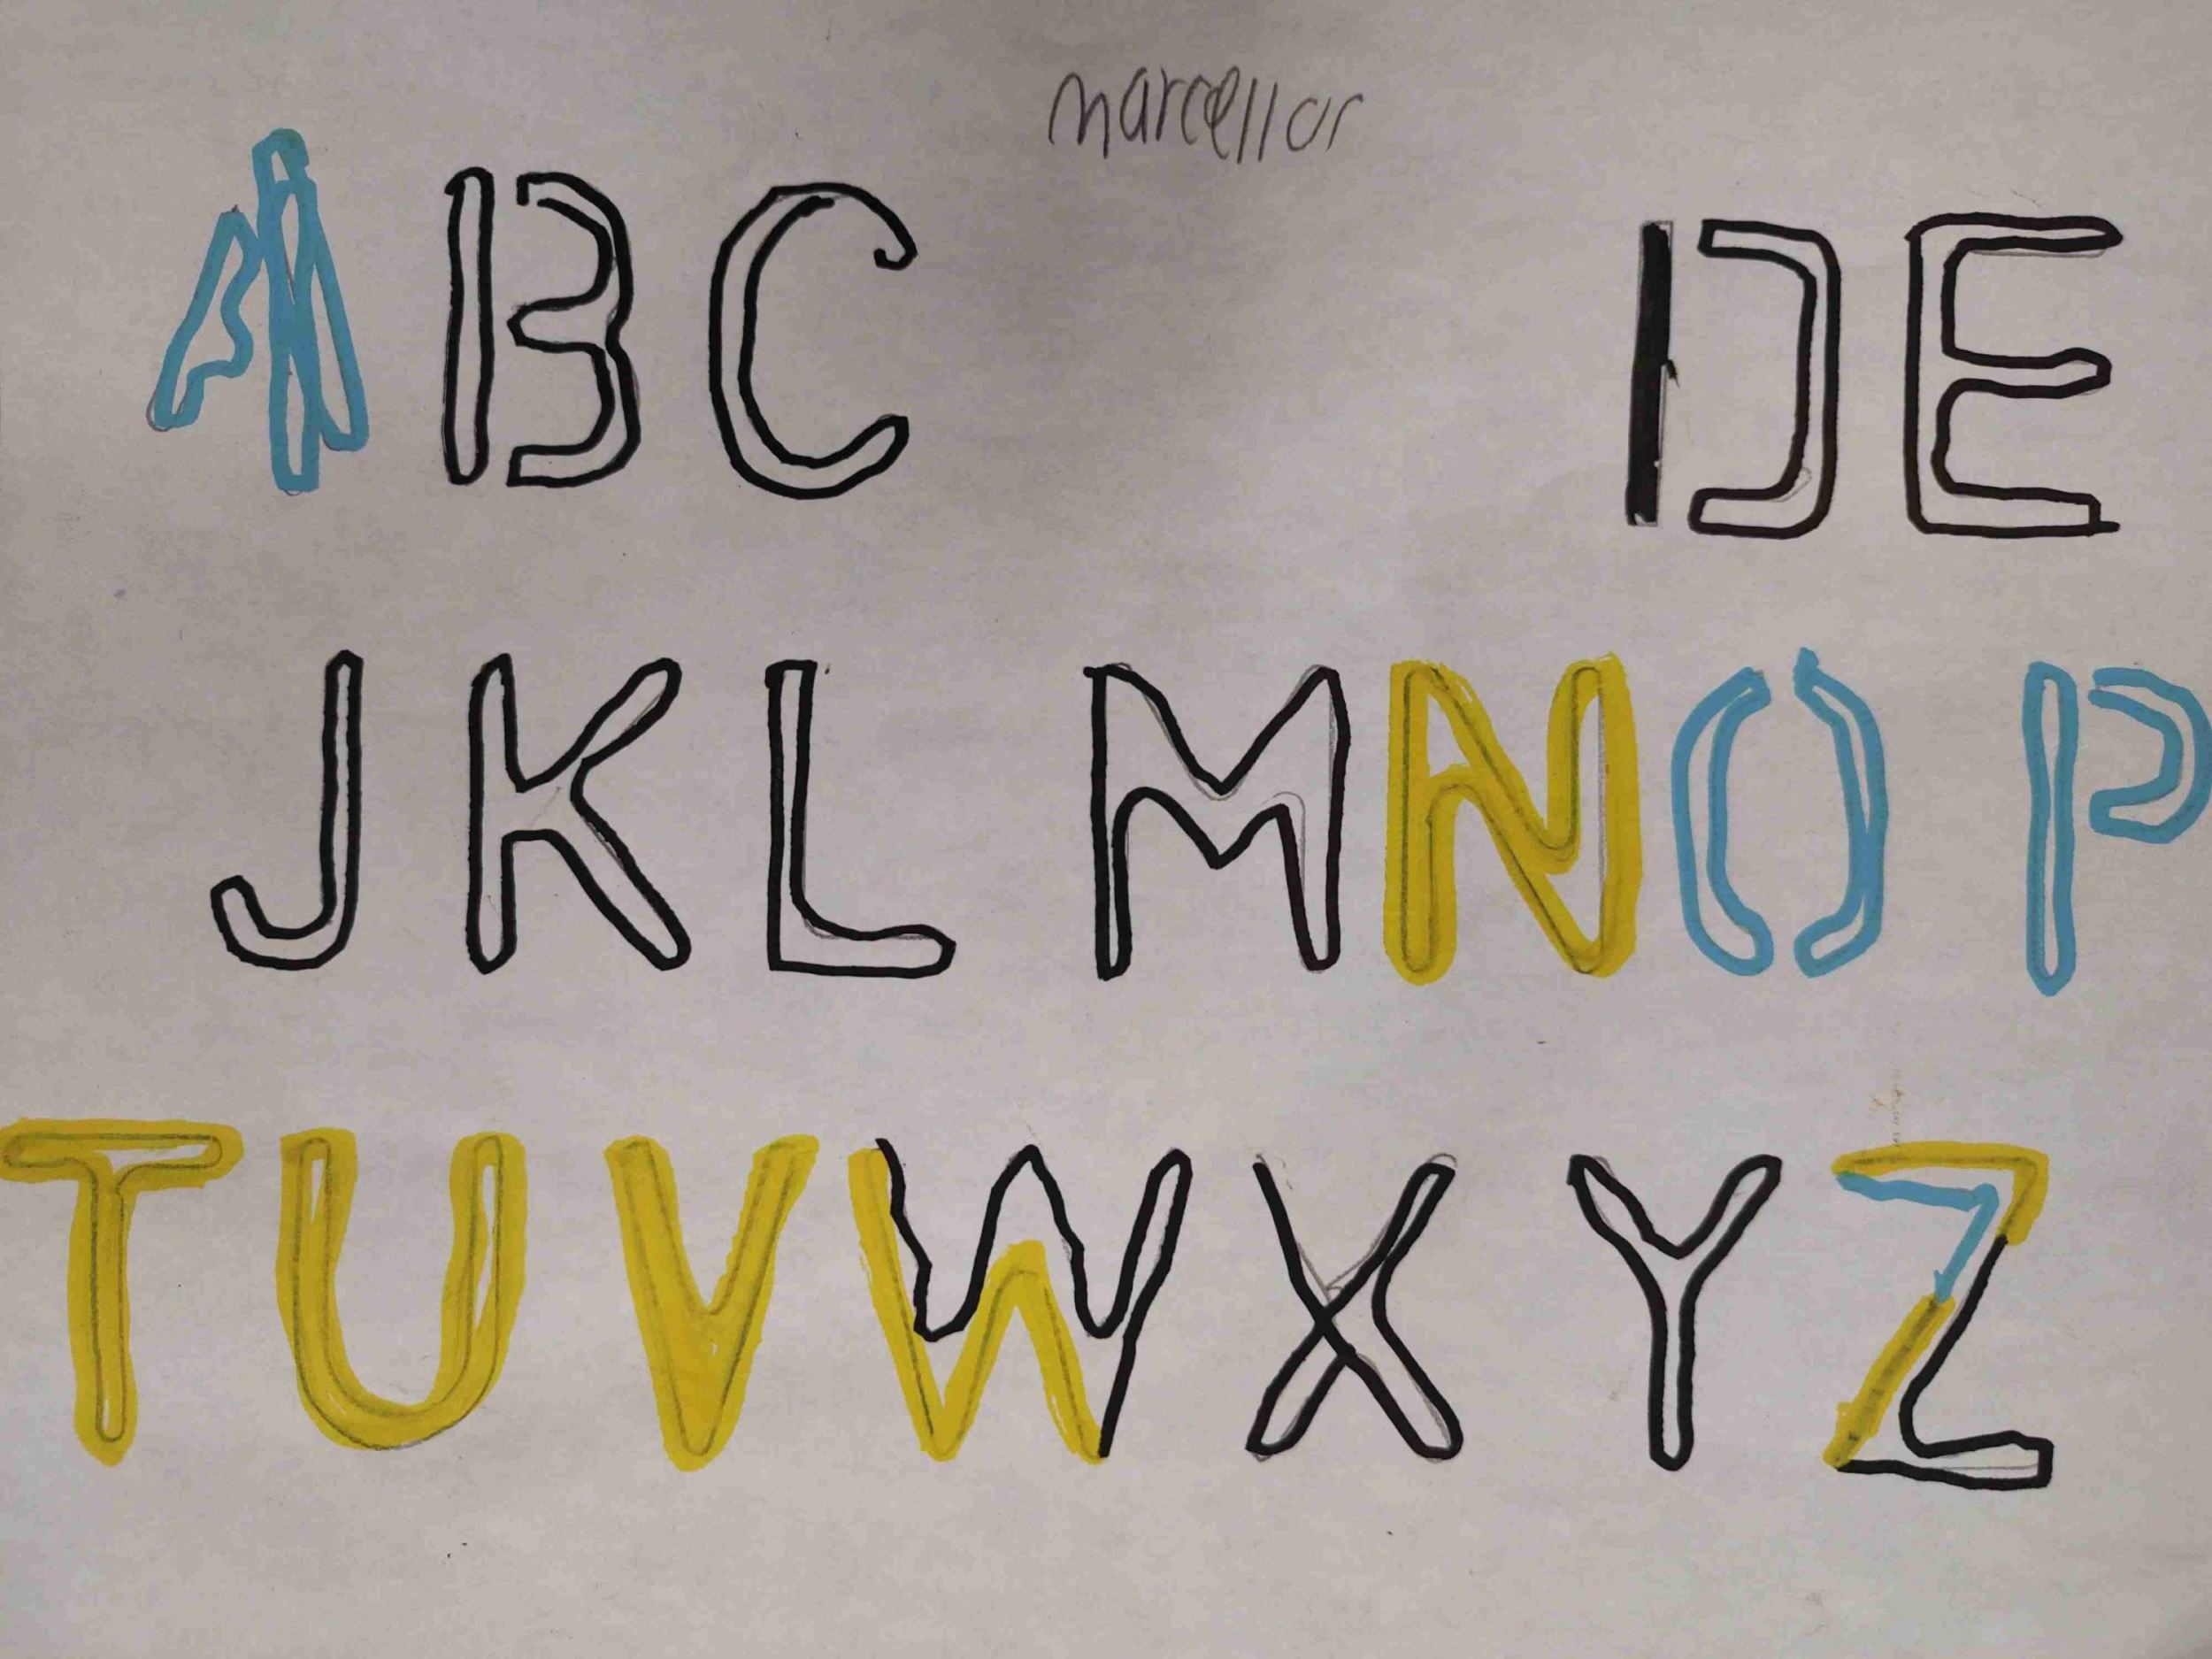 marcellar
A B C D E
J K L M N O P
T U V W X Y Z